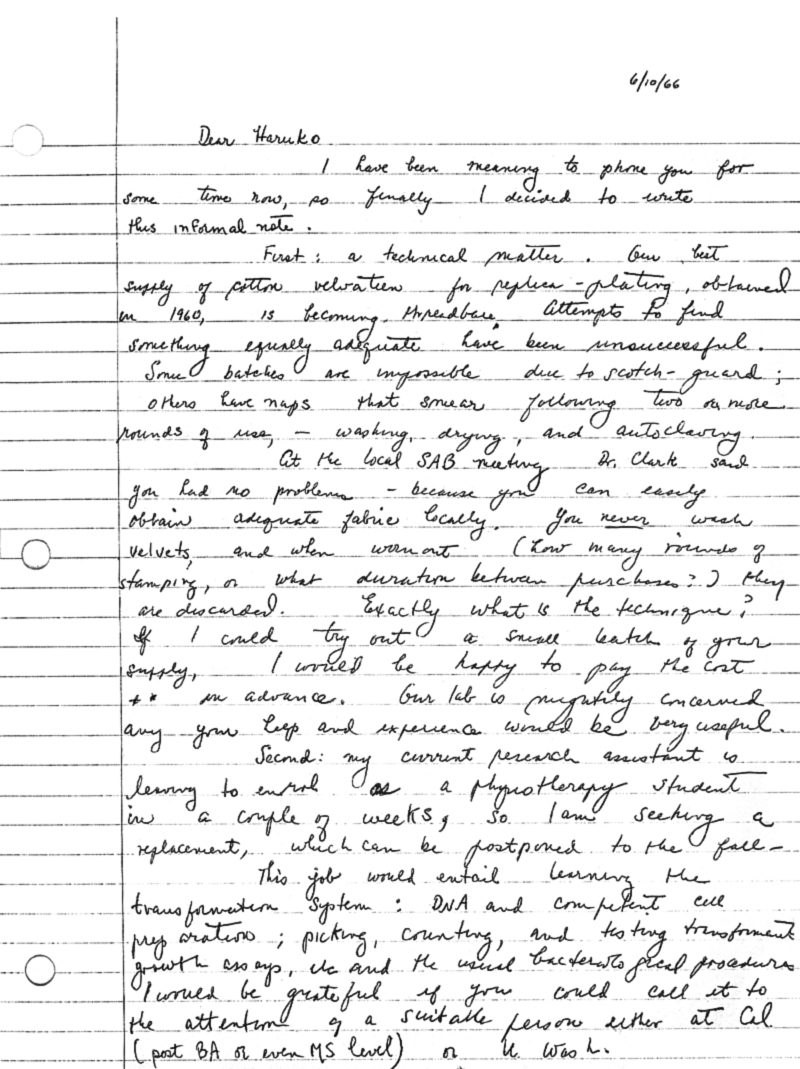 6/10/66
Dear Haruko
I have been meaning to phone you for
some time now, so finally I decided to write
this informal note.
First: a technical matter. Our best
supply of cotton velveteen for replica-plating, obtained
in 1960, is becoming threadbare. Attempts to find
something equally adequate have been unsuccessful.
Some batches are impossible due to scotch-guard;
others have naps that smear following two or more
rounds of use, - washing, drying, and autoclaving.
At the local SAB meeting Dr. Clark said
you had no problems - because you can easily
obtain adequate fabric locally. You never wash
velvets, and when worn out (how many rounds of
stamping, or what duration between purchases?) they
are discarded. Exactly what is the technique?
If I could try out a small batch of your
supply, I would be happy to pay the cost
in advance. Our lab is mightily concerned
any your help and experience would be very useful.
Second: my current research assistant is
leaving to enrol as a physiotherapy student
in a couple of weeks, so I am seeking a
replacement, which can be postponed to the fall-
This job would entail learning the
transformation system: DNA and competent cell
preparation; picking, counting, and testing transformants
growth assays, etc and the usual bacteriological procedures
I would be grateful if you could call it to
the attention of a suitable person either at Cal
(post BA or even MS level) or U. Wash.